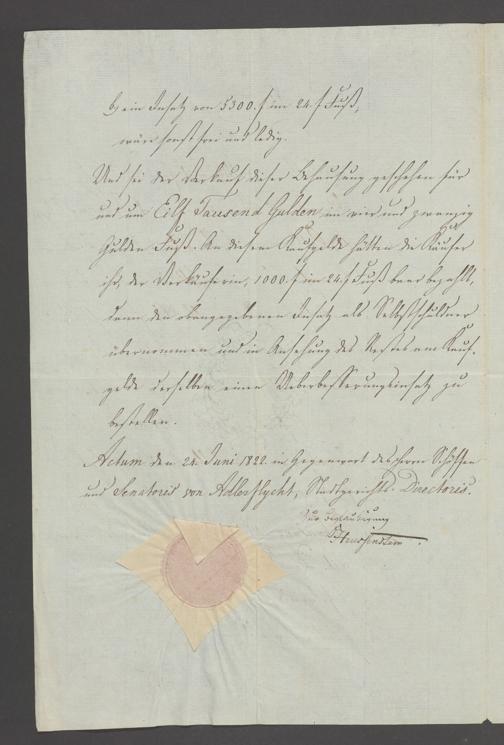 b, ein Insatz von 5300. f im 24. f Fuß,
wäre sonst frei und ledig.
Und sei der Verkauf dieser Behausung geschehen für
und um Eilf Tausend Gulden im vier und zwanzig
Gulden Fuß. An diesem Kaufgelde hätten die Käufer
ihr, der Verkäuferin, 1000. f im 24. f Fuß baar bezahlt,
dann den obenangegebenen Insatz als Selbstschuldner
übernommen und in Ansehung des Restes am Kauf-
gelde derselben einen Ueberbesserungsinsatz zu
bestellen.
Actum den 24. Juni 1822. in Gegenwart des Herrn Schöffen
und Senatoris von Adlerflycht, Stadtgerichts-Directoris.
Zur Beglaubigung